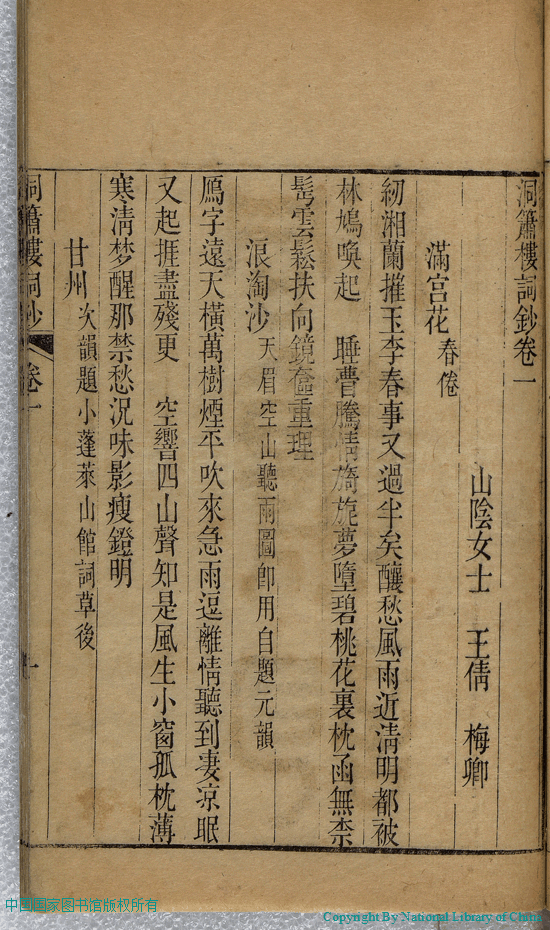 洞簫樓詞鈔卷一
山陰女士　王倩　梅卿
滿宮花 春倦
紉湘蘭摧玉李春事又過半矣釀愁風雨近淸明都被
林鳩喚起　睡瞢騰情旖旎夢墮碧桃花裏枕函無柰
髩雲鬆扶向鏡奩重理
浪淘沙 天眉空山聽雨圖卽用自題元韻
鴈字遠天橫萬樹煙平吹來急雨逗離情聽到凄凉眠
又起捱盡殘更　空響四山聲知是風生小窗孤枕薄
寒淸梦醒那禁愁況味影瘦鐙明
甘州 次韻題小蓬萊山館詞草後
洞簫樓詞鈔 卷一 一
中国国家图书馆版权所有
Copyright By National Library of China